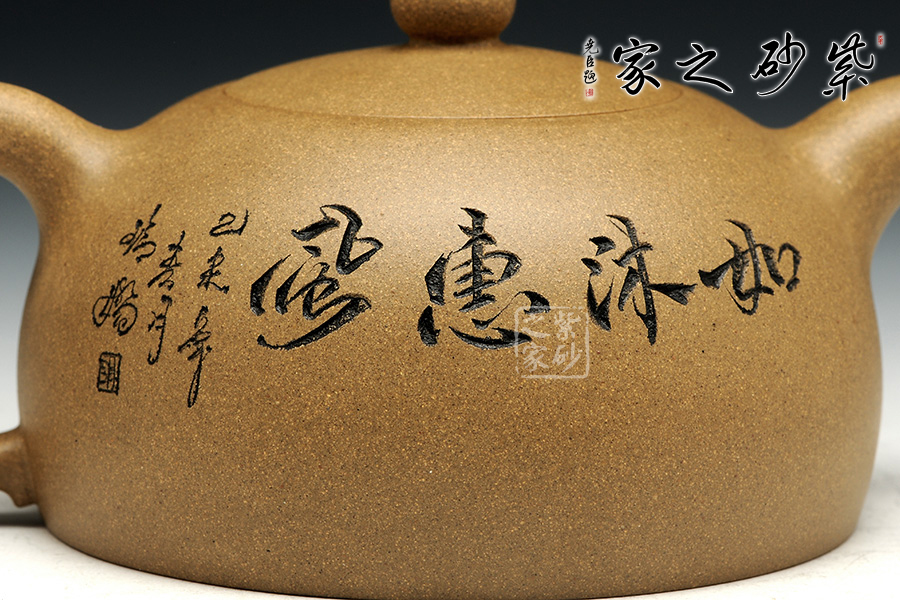 紫砂之家
如沐惠風
乙未年
春月
紫砂
之家